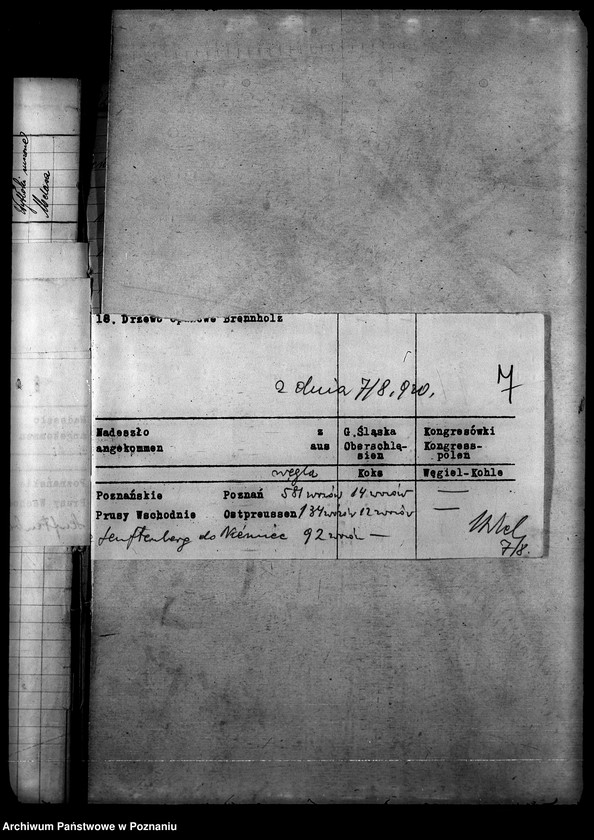 18. Drzewo opałowe Brennholz
z dnia 7/8. 920.
Nadeszło z G.Śląska Kongresówki
angekommen aus Oberschlą- Kongress-
sien polen
węgla Koks Węgiel-Kohle
Poznańskie Poznań 581 wozów 14 wozów —
Prusy Wschodnie Ostpreussen 134 wozów 12 wozów —
Senftenberg do Niemiec 92 wozów —
7/8.
Archiwum Państwowe w Poznaniu